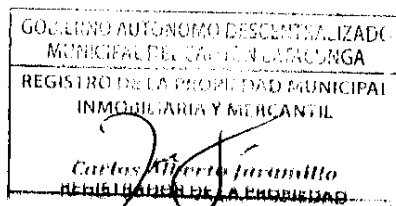 GOBIERNO AUTÓNOMO DESCENTRALIZADO
MUNICIPAL DEL CANTÓN LATACUNGA
REGISTRO DE LA PROPIEDAD MUNICIPAL
INMOBILIARIA Y MERCANTIL
Carlos Alberto Jaramillo
REGISTRADOR DE LA PROPIEDAD